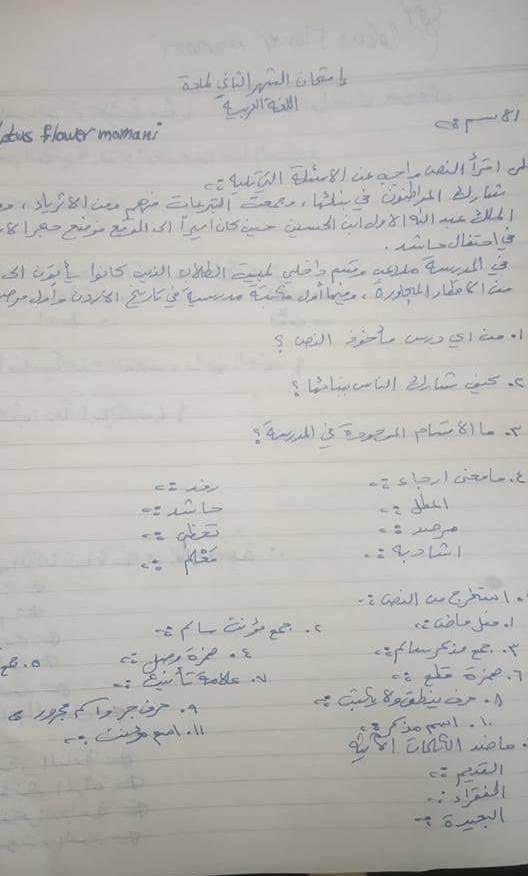 امتحان الشهر الثاني لمادة
اللغة العربية
الاسم :-
Lotus flower momani
اقرأ النص واجيب عن الاسئلة التي تليه :-
شارك المواطنون في بنائها، وجمعت التبرعات منهم ومن الاثرياء،
الملك عبد الله الاول ابن الحسين حين كان اميراً الى الموقع فوضع حجر
في احتفال حاشد.
في المدرسة ملاعب وقسم داخلي لمبيت الطلاب الذين كانوا يأتون
من الاقطار المجاورة، وفيها أول مكتبة مدرسية في تاريخ الاردن وأول
١. من اي درس مأخوذ النص ؟
٢. كيف شارك الناس ببنائها؟
٣. ما الاقسام الموجودة في المدرسة؟
٤. ما معنى ارجاء :- رفد :-
المطل :- حاشد :-
مرصد :- تحظى :-
اشادبة :- مَعْلم :-
استخرج من النص :-
١. فعل ماضي :- ٢. جمع مؤنث سالم :-
٣. جمع مذكر سالم :- ٤. همزة وصل :- ٥. جمع
٦. همزة قطع :- ٧. علامة تأنيث :-
٨. حرف ينطق ولا يكتب :- ٩. حرف جر واسم مجرور :-
١٠. اسم مذكر :- ١١. اسم مؤنث :-
ما ضد الكلمات الآتية
القديم :-
الفقراء :-
البعيدة :-